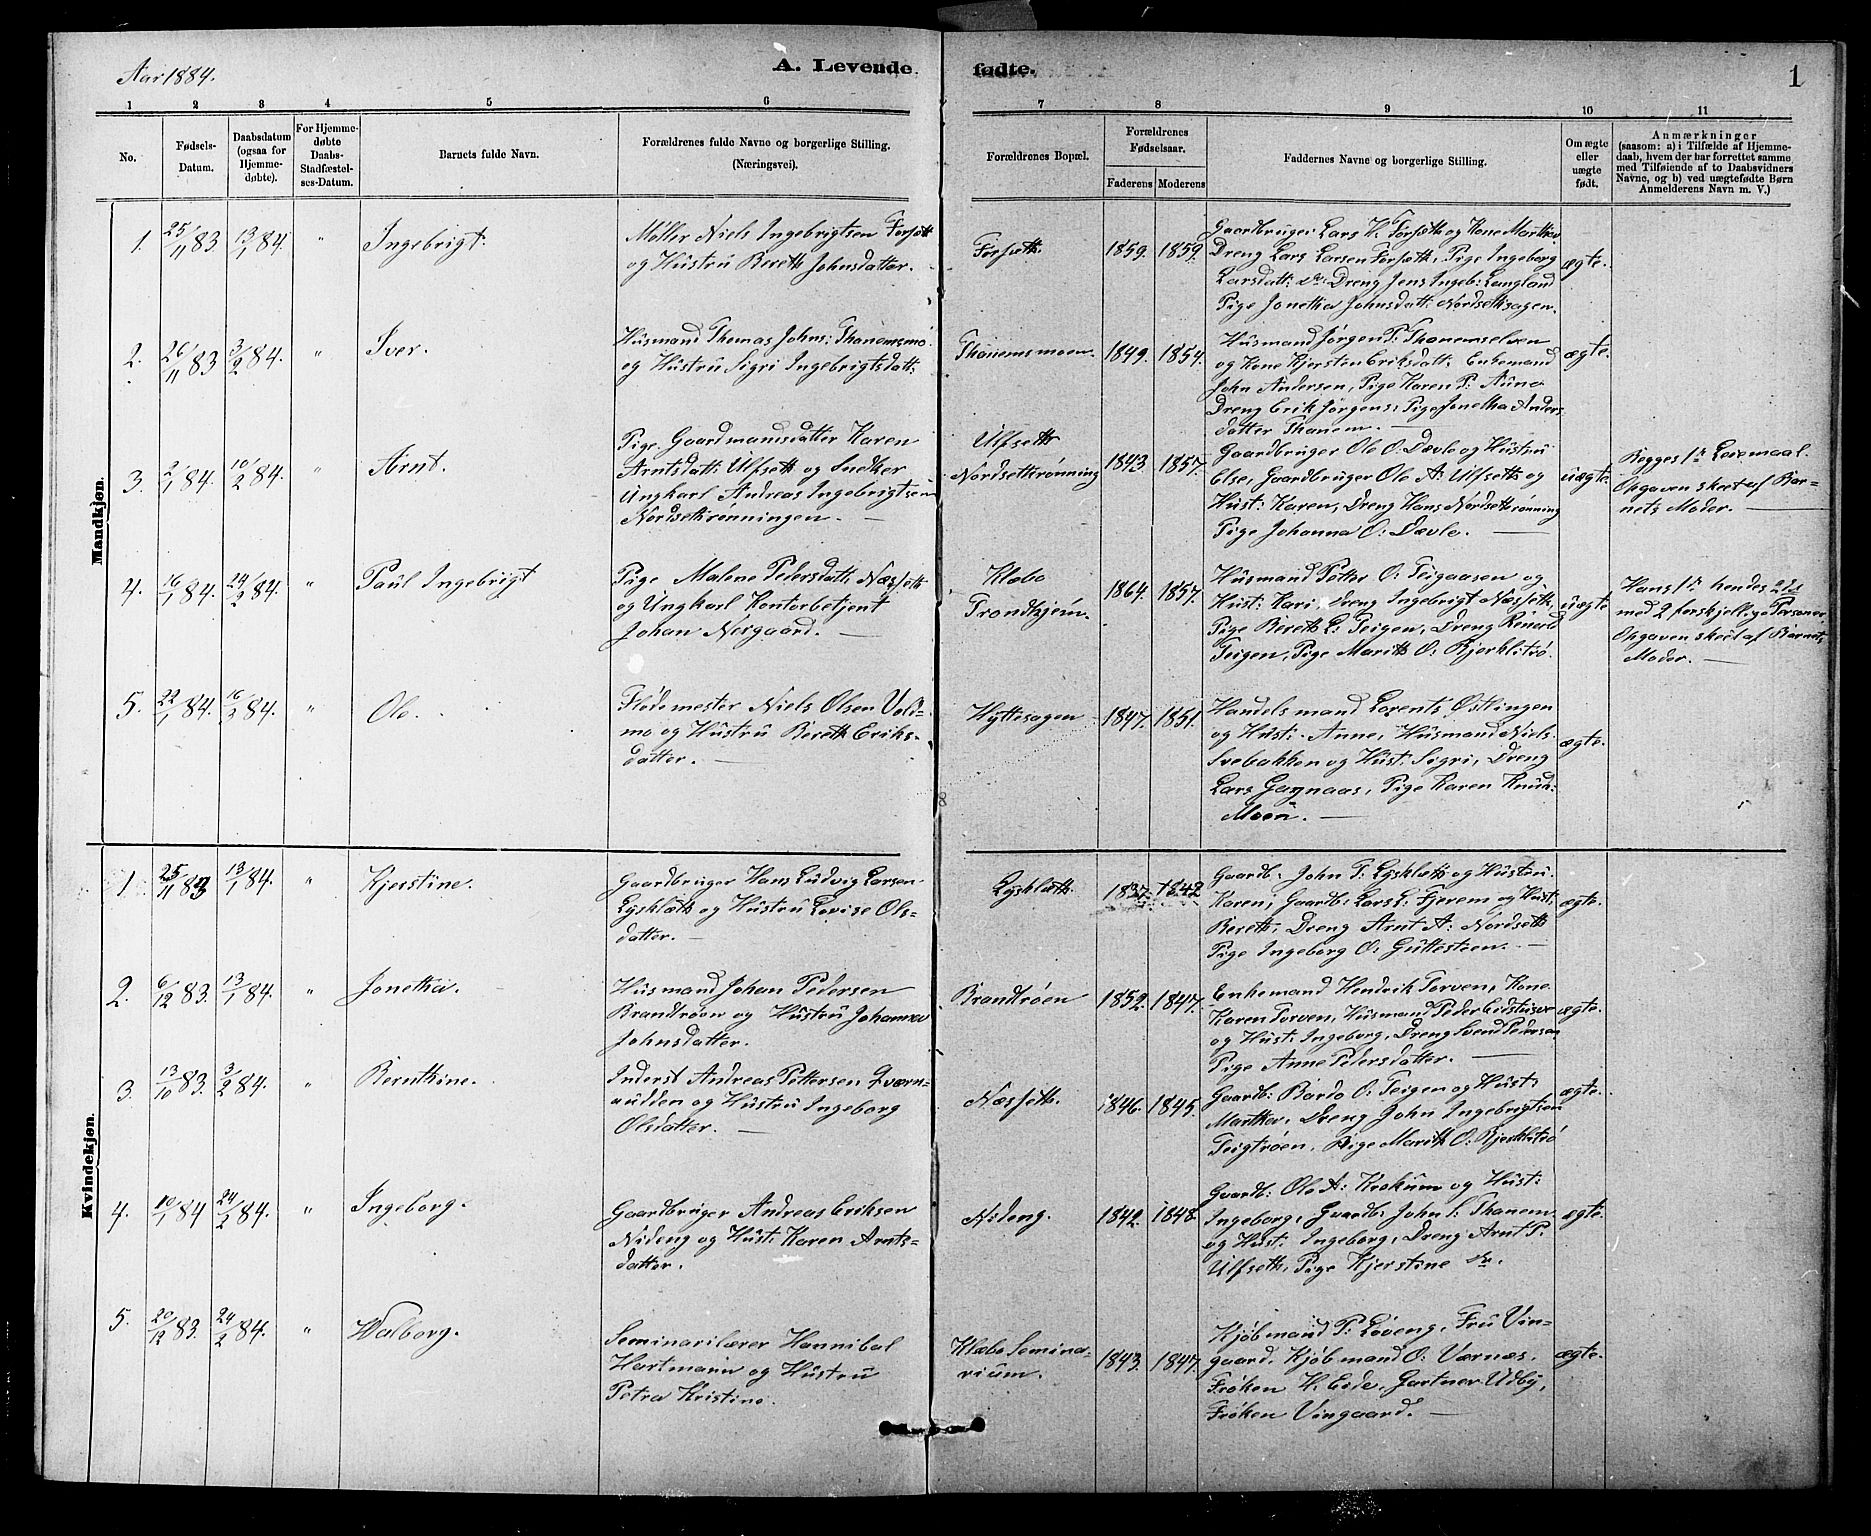 Aar 1884.
A. Levende fødte.
1
1 2 3 4 5 6 7 8 9 10 11
No.
Fødsels-
Datum.
Daabsdatum
(ogsaa for
Hjemme-
døbte).
For Hjemme-
døbte
Daabs-
Stadfæstel-
ses-Datum.
Barnets fulde Navn.
Forældrenes fulde Navne og borgerlige Stilling.
(Næringsvei).
Forældrenes Bopæl.
Forældrenes
Fødselsaar.
Faderens Moderens
Faddernes Navne og borgerlige Stilling.
Om ægte
eller
uægte
født.
Anmærkninger
(saasom: a) i Tilfælde af Hjemme-
daab, hvem der har forrettet samme
med Tilføiende af to Daabsvidners
Navne, og b) ved uægtefødte Børn
Anmelderens Navn m. V.)
Mandkjøn.
1. 25/11 83 13/1 84. " Ingebrigt.
Møller Niels Ingebrigtsen Forseth
og Hustru Bereth Johnsdatter.
Forseth. 1859. 1859.
Gaardbruger Lars H. Forseth og Kone Marthe
Dreng Lars Larsen Forseth, Pige Ingeborg
Larsdatt: do Dreng Jens Ingeb: Langland
Pige Jonetha Johnsdatt: Nordsethsagen.
ægte.
2. 26/11 83 3/2 84. " Iver.
Husmand Thomas Johns: Thanemsmo
og Hustru Sigri Ingebrigtsdatt:
Thanemsmoen. 1849. 1854.
Husmand Jørgen P: Thanemselven
og Kone Kjersten Eriksdatt: Enkemand
John Andersen, Pige Karen P: Aune
Dreng Erik Jørgens: Pige Jonetha Anders-
datter Thanem.
ægte.
3. 2/1 84. 10/2 84. " Arnt.
Pige Gaardmandsdatter Karen
Arntsdatt: Ulfseth og Snedker
Ungkarl Andreas Ingebrigtsen
Nordsethrønningen.
Ulfseth
Nordsethrønning 1843. 1857.
Gaardbruger Ole O: Dævle og Hustru
Else, Gaardbruger Ole A: Ulfseth og
Hust: Karen, Dreng Hans Nordsethrønning
Pige Johanna O: Dævle.
uægte.
Begges 1ste Leiemaal.
Opgaven skeet af Bar-
nets Moder.
4. 16/1 84. 24/2 84. " Paul Ingebrigt
Pige Malene Pedersdatt: Næsseth
og Ungkarl Kontorbetjent
Johan Neergaard.
Klæbo
Trondhjem. 1864. 1857.
Husmand Petter O: Teigaasen og
Hust: Kari, Dreng Ingebrigt Næsseth,
Pige Bereth L: Teigen, Dreng
Teigen, Pige Marith O: Bjerklitrø.
uægte
Hans 1ste hendes 2det
med 2 forskjellige Personer,
Opgaven skeet af Barnets
Moder.
5. 22/1 84. 16/3 84. " Ole.
Flødemester Niels Olsen Vold-
mo og Hustru Bereth Eriks-
datter.
Hyttesagen 1847. 1851.
Handelsmand Lorents Østlingen
og Hust: Anne, Husmand Niels
Svebakken og Hust: Sigri, Dreng
Lars Gagnaas, Pige Karen Knuds:
Moen.
ægte.
Kvindekjøn.
1. 25/11 83 13/1 84. " Kjerstine.
Gaardbruger Hans Ludvig Larsen
Lysklæth og Hustru Lovise Ols-
datter.
Lysklæth 1837. 1842
Gaardb: John P: Lysklæth og Hustru
Karen, Gaardb: Lars L: Fjerem og Hust:
Bereth, Dreng Arnt A: Nordseth
Pige Ingeborg O: Guttesteen.
ægte.
2. 6/12 83. 13/1 84. " Jonetha.
Husmand Johan Pedersen
Brandtrøen og Hustru Johanna
Johnsdatter.
Brandtrøen 1852. 1847.
Enkemand Hendrik Torven, Kone
Karen Torven, Husmand Peder Eidstuen
og Hust: Ingeborg, Dreng Svend Pedersen
Pige Anne Pedersdatter.
ægte.
3. 13/10 83. 3/2 84. " Bernthine.
Inderst Andreas Pettersen Qværn-
rudden og Hustru Ingeborg
Olsdatter.
Næsseth. 1846. 1845.
Gaardb: Bardo O: Teigen og Hust:
Marthe, Dreng John Ingebrigtsen
Teigtrøen, Pige Marith O: Bjerklitrø
ægte.
4. 10/1 84 24/2 84. " Ingeborg.
Gaardbruger Andreas Eriksen
Nideng og Hust: Karen Arnts-
datter.
Nideng. 1842. 1848.
Gaardb: Ole A: Krokum og Hust:
Ingeborg, Gaardb: John S: Thanem
og Hust: Ingeborg, Dreng Arnt P:
Ulfseth, Pige Kjerstine do.
ægte.
5. 20/12 83. 24/2 84. " Walborg.
Seminarilærer Hannibal
Hartmann og Hustru
Petra Kristine.
Klæbo Semina-
rium. 1843. 1847.
Kjøbmand P: Løveng, Fru Vin-
gaard, Kjøbmand O: Værnes,
Frøken H. Eide, Gartner Udby,
Frøken Vingaard.
ægte.